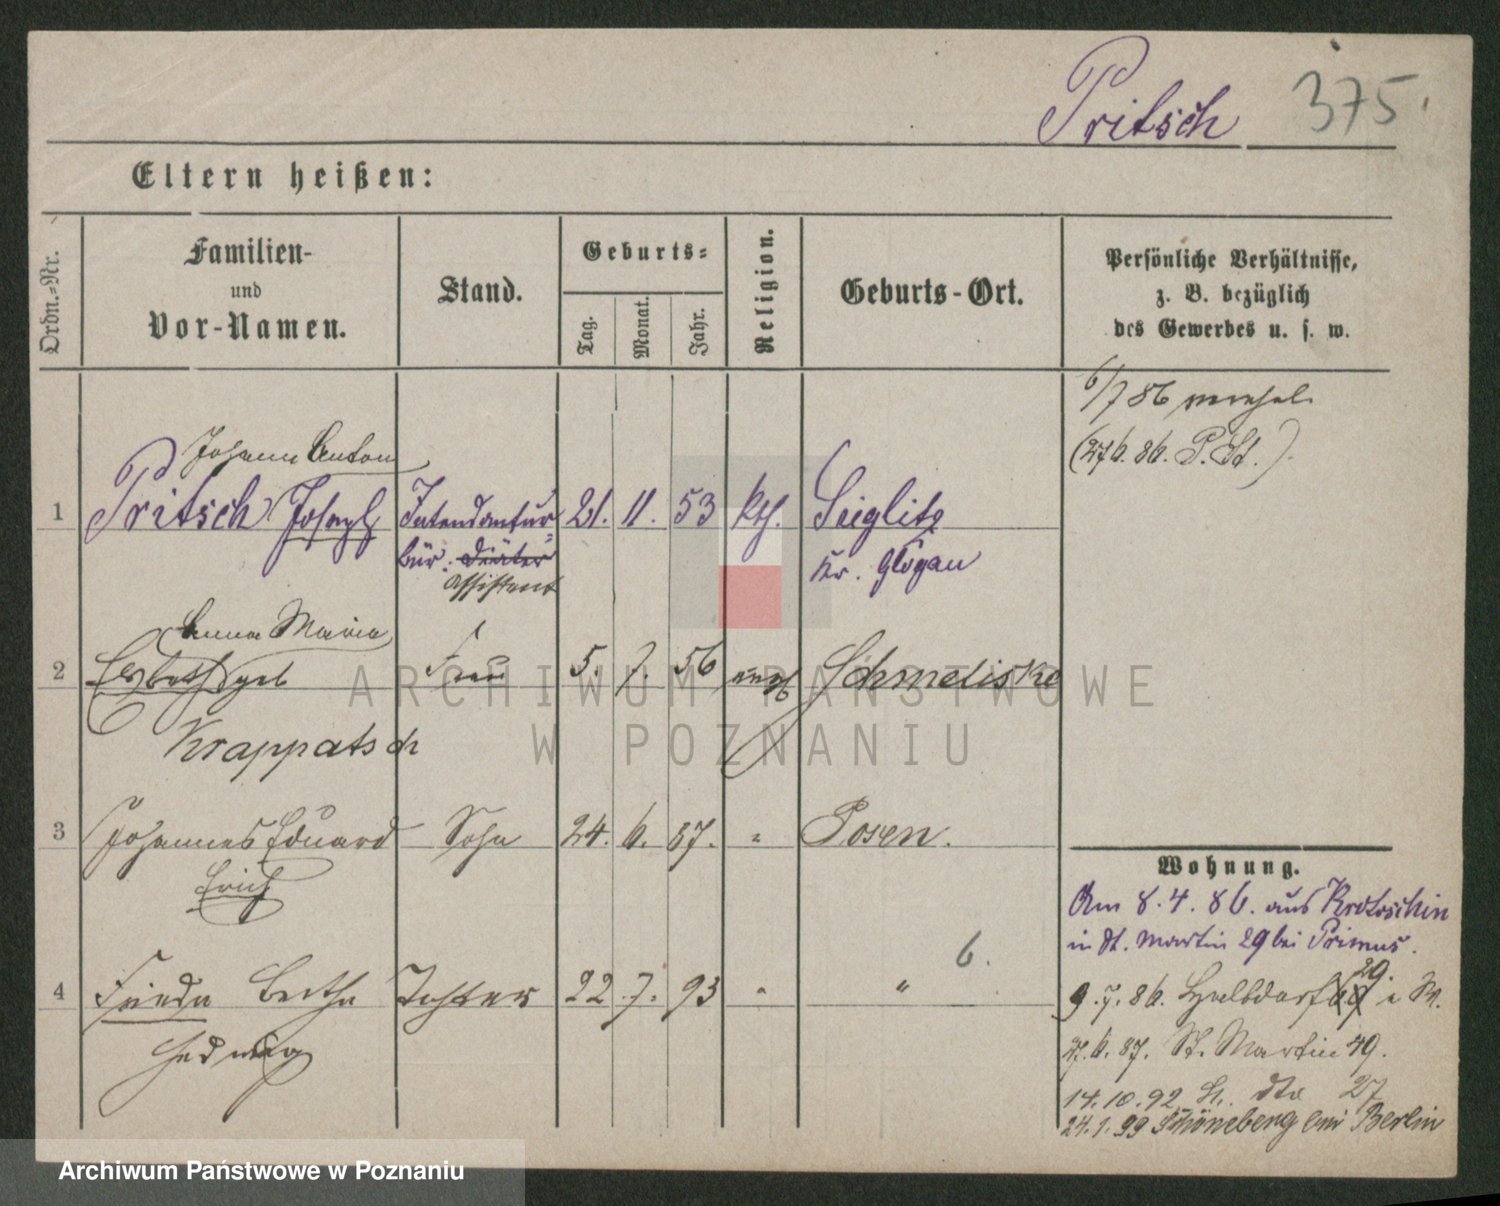 Pritsch 375.
Eltern heißen:
Ordn.-Nr.
Familien-
und
Vor-Namen.
Stand.
Geburts-
Tag.
Monat.
Jahr.
Religion.
Geburts-Ort.
Persönliche Verhältnisse,
z. B. bezüglich
des Gewerbes u. s. w.
6/7 86
(27/6. 86. P. St.).
Johann Anton
1 Pritsch Joseph Intendantur 21. 11. 53 kth. Seiglitz
bür. Diätar Kr. Glogau
Assistent
Anna Maria
2 Elsbeth geb Frau 5. 7. 56 evgl Schmeliske
Krappatsch
3 Johannes Eduard Sohn 24. 6. 87. " Posen.
Erich
4 Frieda Bertha Tochter 22. 7. 93 " "
6.
Hedwig
Wohnung.
Am 8. 4. 86. aus Krotoschin
in St. Martin 29 bei Primus.
9. 7. 86. Halbdorf 29.
27. 6. 87. St. Martin 49.
14. 10. 92 H. dto 27
24. 1. 99 Schöneberg bei Berlin
ARCHIWUM PAŃSTWOWE
W POZNANIU
Archiwum Państwowe w Poznaniu